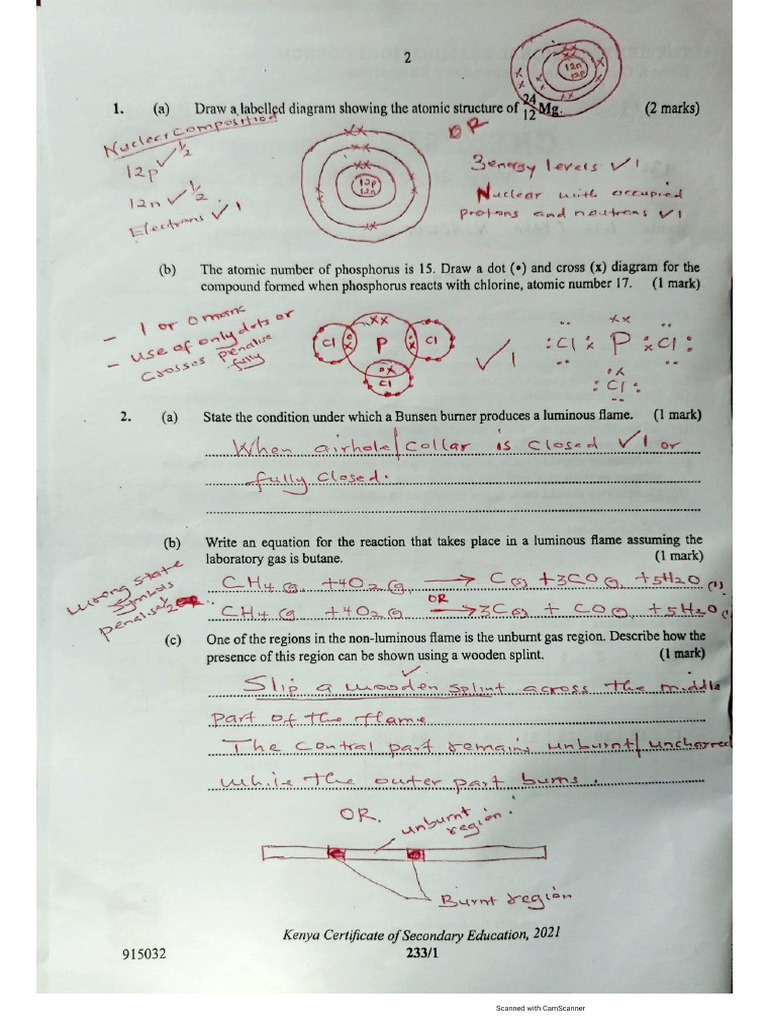 2
12n
12p
1. (a) Draw a labelled diagram showing the atomic structure of 24 12 Mg. (2 marks)
Nuclear Composition
12p ✓½
12n ✓½
Electrons ✓1
12p
12n
OR
3 energy levels ✓1
Nuclear with occupied
protons and neutrons ✓1
(b) The atomic number of phosphorus is 15. Draw a dot (•) and cross (x) diagram for the
compound formed when phosphorus reacts with chlorine, atomic number 17. (1 mark)
- 1 or 0 mark
- use of only dots or
crosses penalise
fully
Cl P Cl
Cl
✓1
Cl P Cl
Cl
2. (a) State the condition under which a Bunsen burner produces a luminous flame. (1 mark)
When airhole/collar is closed ✓1 or
fully closed.
(b) Write an equation for the reaction that takes place in a luminous flame assuming the
laboratory gas is butane. (1 mark)
wrong state
symbols
penalise ½
CH4(g) + 4O2(g) → C(s) + 3CO(g) + 5H2O(l)
OR
CH4(g) + 4O2(g) → 3C(s) + CO(g) + 5H2O(l)
(c) One of the regions in the non-luminous flame is the unburnt gas region. Describe how the
presence of this region can be shown using a wooden splint. (1 mark)
✓
Slip a wooden splint across the middle
part of the flame
The central part remains unburnt/uncharred
while the outer part burns.
OR.
unburnt
region.
Burnt region
Kenya Certificate of Secondary Education, 2021
915032
233/1
Scanned with CamScanner